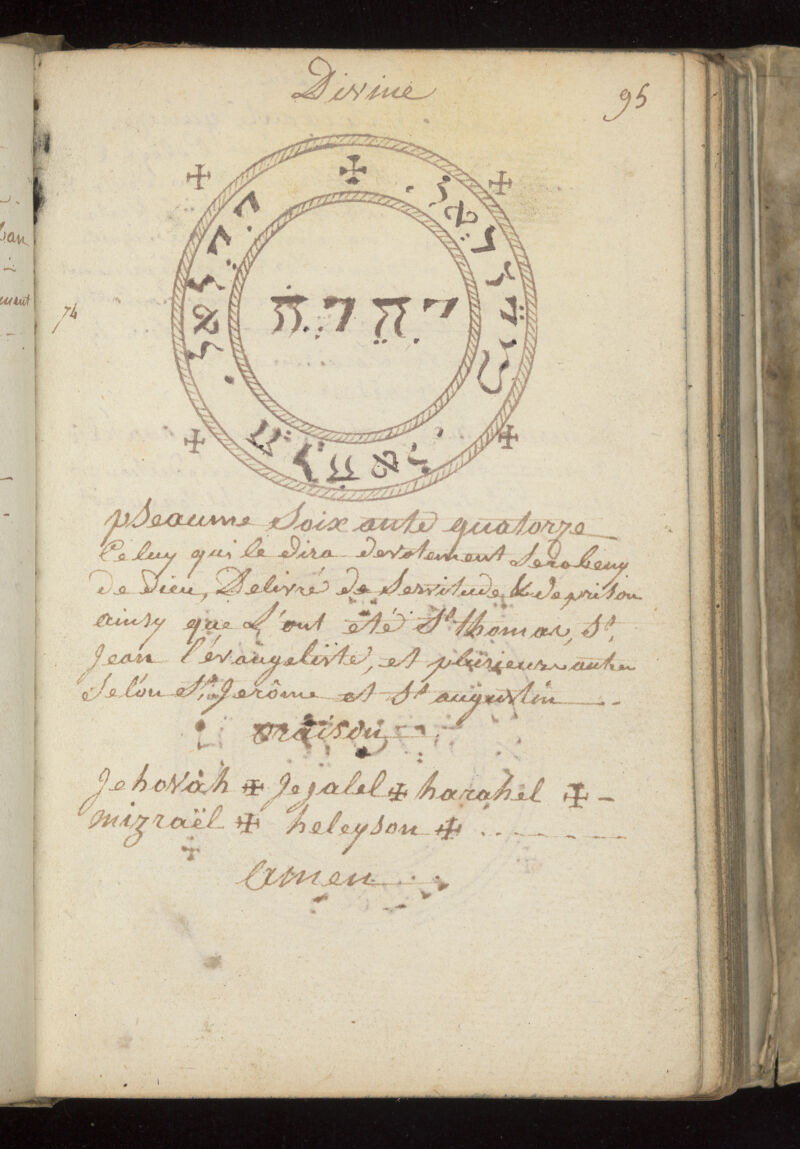 Divine
95
74
יהוה
pseaume soixante quatorze
Celuy qui le dira devotement sera beny
de Dieu, Delivré de servitude & de prison
ainsy que l'ont été St thomas, St.
Jean l'évangeliste, et plusieurs autres
selon St Jerôme et St augustin
oraison
Jehovah ✠ Jejalel ✠ harahel ✠ -
mizraël ✠ heleyson ✠
amen